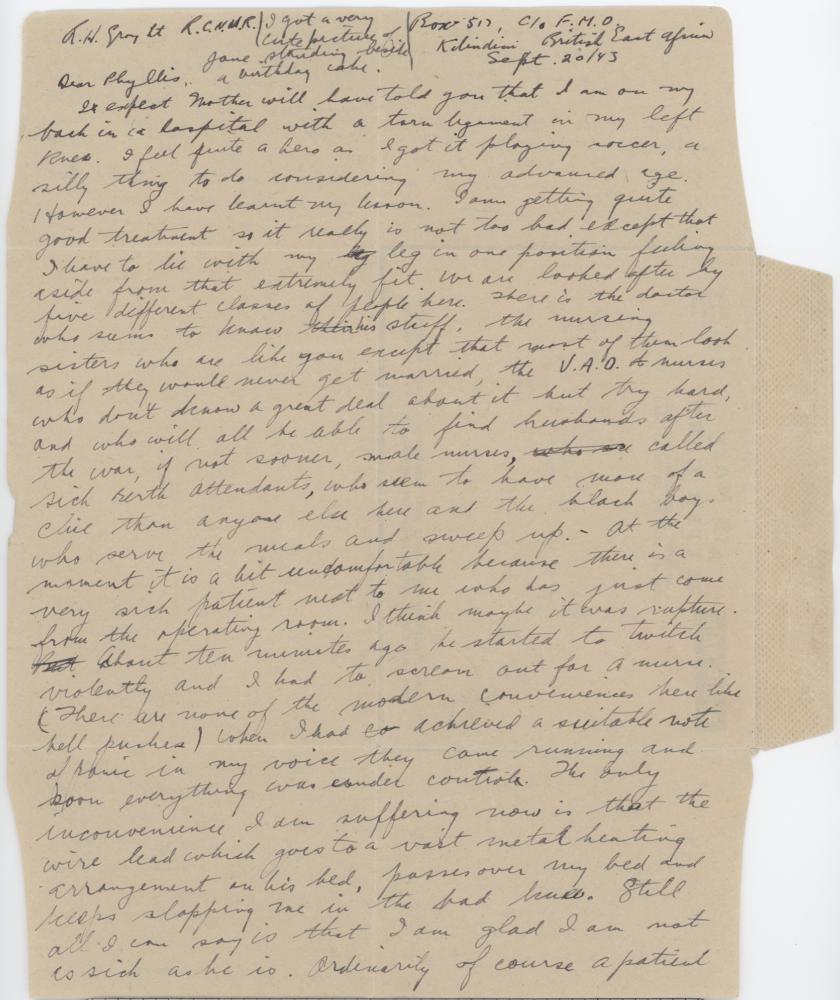 R.H. Gray Lt R.C.N.V.R.
(I got a very
cute picture of
Jane standing beside
a birthday cake.
Box 517, C/o F.M.O.
Kilindini British East Africa
Sept. 20/43
Dear Phyllis,
I expect Mother will have told you that I am on my
back in a hospital with a torn ligament in my left
knee. I feel quite a hero as I got it playing soccer, a
silly thing to do considering my advanced age.
However I have learnt my lesson. I am getting quite
good treatment so it really is not too bad except that
I have to lie with my leg in one position feeling
aside from that extremely fit. We are looked after by
five different classes of people here. There is the doctor
who seems to know his stuff, the nursing
sisters who are like you except that most of them look
as if they would never get married, the V.A.D. nurses
who don't know a great deal about it but try hard,
and who will all be able to find husbands after
the war, if not sooner, male nurses, who are called
sick berth attendants, who seem to have more of a
clue than anyone else here and the black boys
who serve the meals and sweep up. - At the
moment it is a bit uncomfortable because there is a
very sick patient next to me who has just come
from the operating room. I think maybe it was rupture.
But About ten minutes ago he started to twitch
violently and I had to scream out for a nurse.
(There are none of the modern conveniences here like
bell pushes) When I had achieved a suitable note
of panic in my voice they came running and
soon everything was under control. The only
inconvenience I am suffering now is that the
wire lead which goes to a vast metal heating
arrangement on his bed, passes over my bed and
keeps slapping me in the bad knee. Still
all I can say is that I am glad I am not
as sick as he is. Ordinarily of course a patient